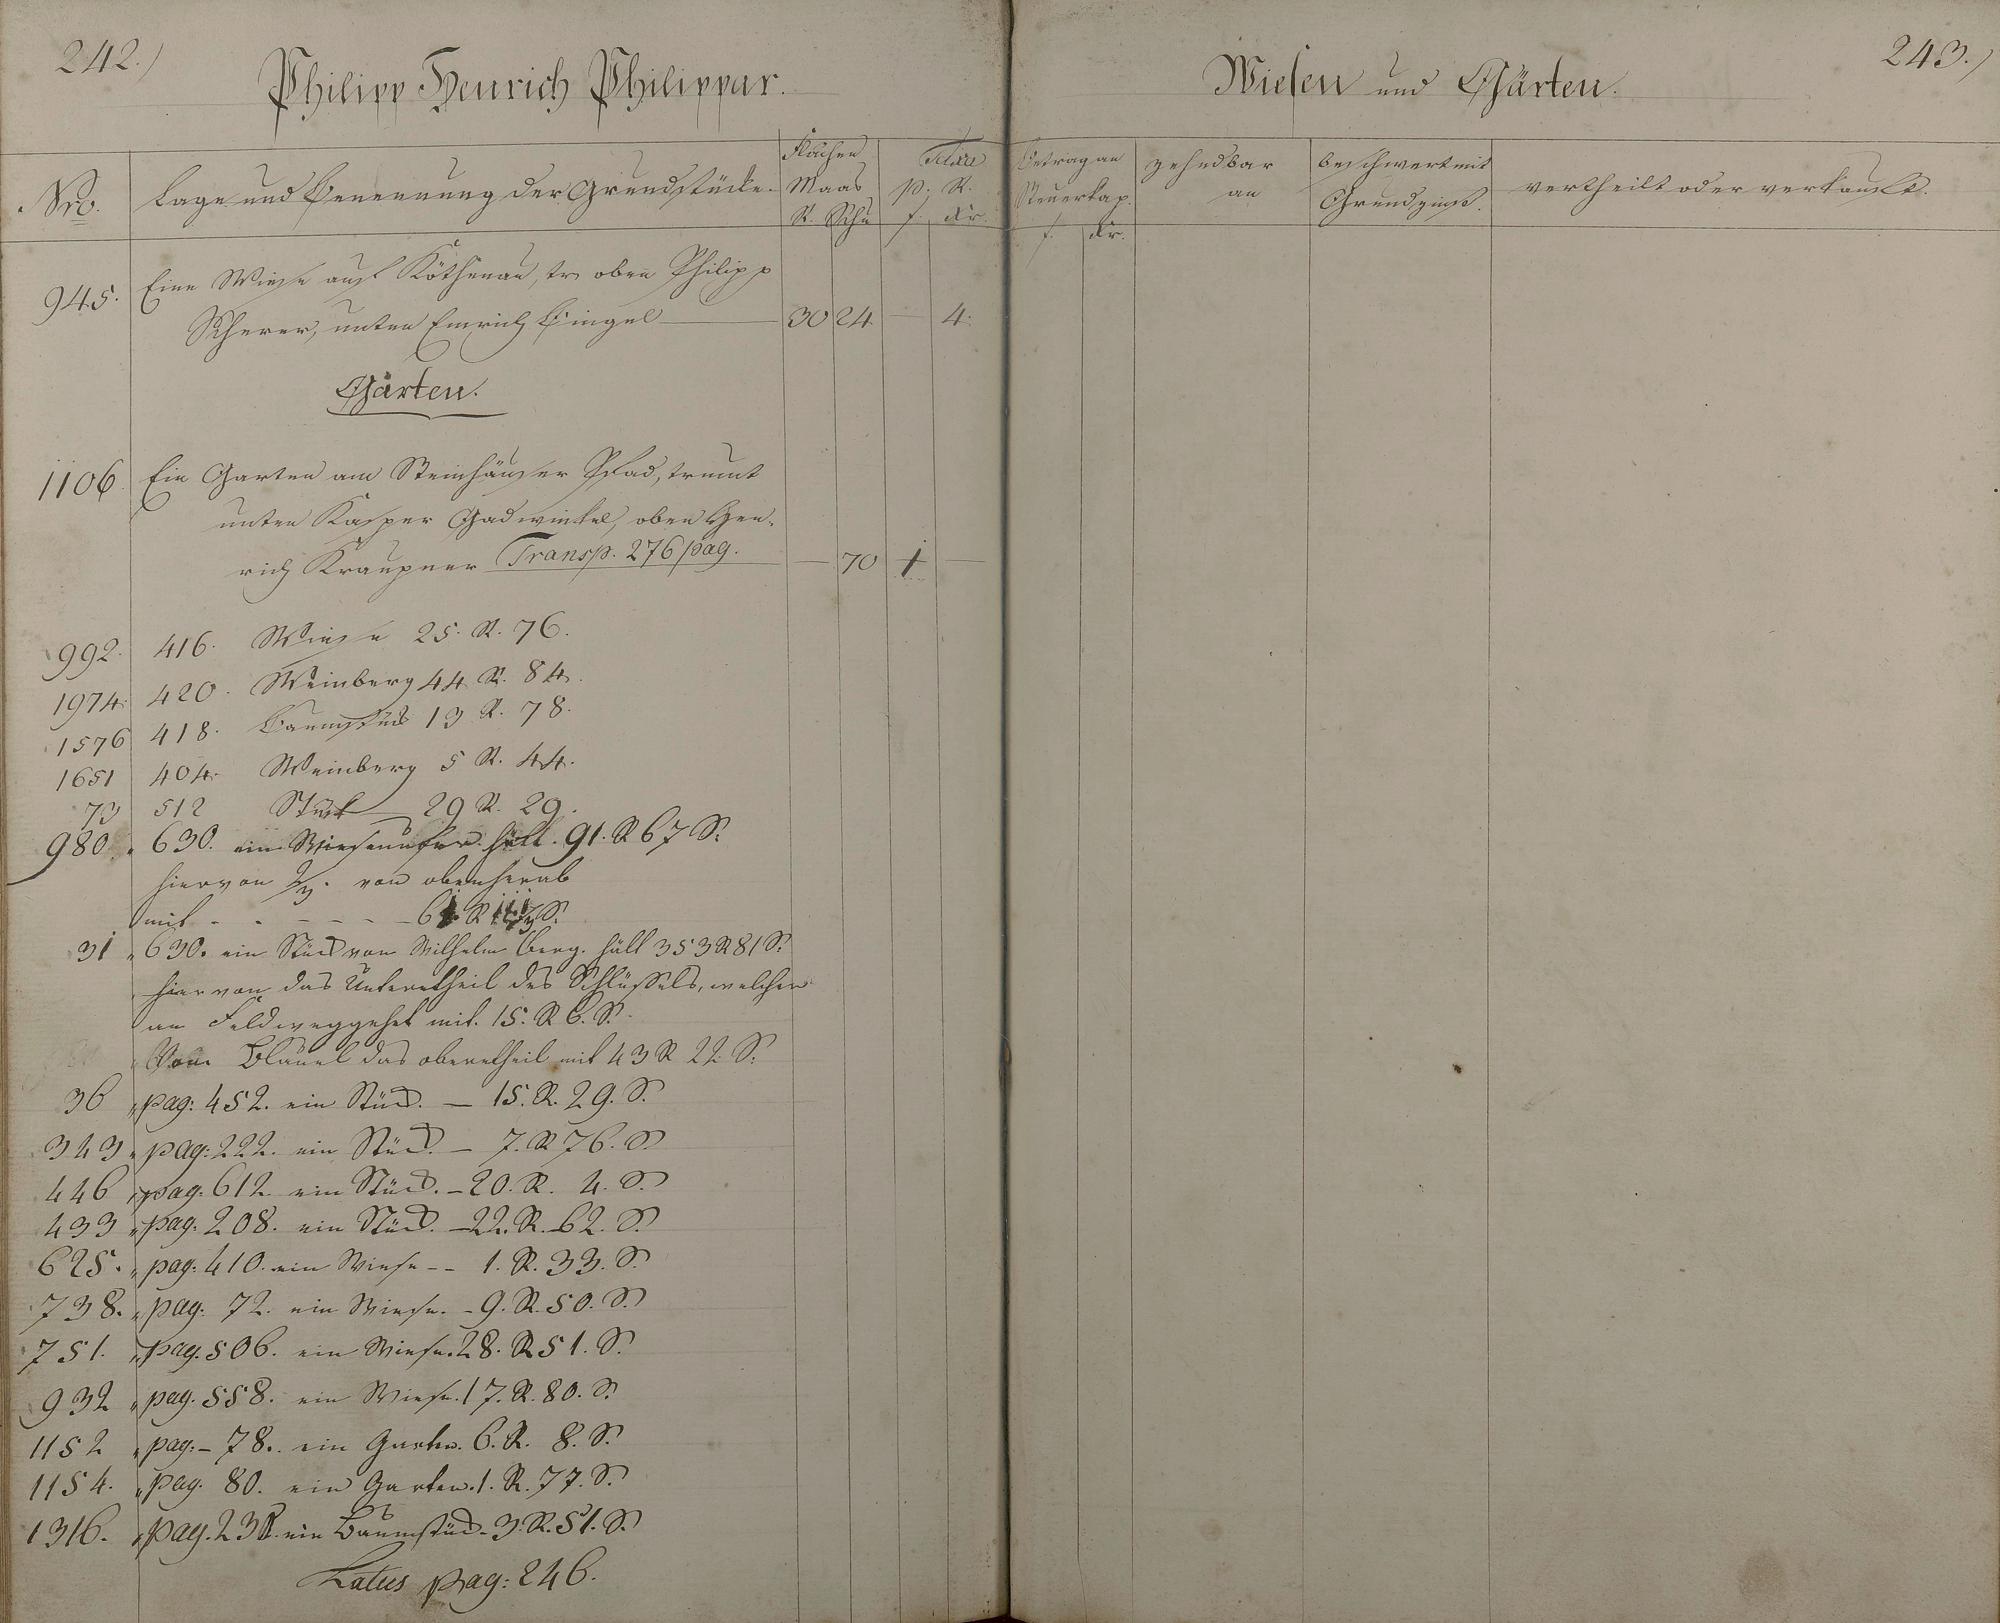 242.)
Philipp Henrich Philippar.
Nro.
Lage und Benennung der Grundstücke.
Flächen
Maas
R. Schu
Taxe
p. R.
f. kr.
945. Eine Wiese auf Köthenau, tr. oben Philipp
Scherer, unten Emrich Bingel 30 24 — 4.
Gärten.
1106. Ein Garten am Steinhäuser Pfad, trennt
unten Kasper Gadwinkel, oben Hen-
rich Kraupner Transp. 276 pag. — 70 1 —
992. 416. Wiese 25. R. 76.
1974. 420. Weinberg 44 R. 84.
1576 418. Baumstück 13 R. 78.
1651 404. Weinberg 5 R. 44.
73 512 Stück 29 R. 29.
980. " 630. ein hält. 91. R 67 S.
hiervon 2/3. von obenherab
mit - - - - - - 6 R S.
31 " 630. ein Stück von Wilhelm Berg. hält 353 R 81 S.
hiervon das Untertheil des Schlüssels, welcher
an Feldweggehet mit. 15. R 6. S.
Vom Bläuel das oberetheil mit 43 R 22. S.
36 " pag: 452. ein Stück. — 15. R. 29. S.
343 " pag: 222. ein Stück. — 7. R 76. S.
446 " pag. 612. ein Stück. — 20. R. 4. S.
433 " pag. 208. ein Stück. — 22. R. 62. S.
625. " pag. 410. ein Wiese - - 1. R. 33. S.
738. " pag. 72. ein Wiese. - 9. R. 50. S.
751. " pag. 506. ein Wiese. 28. R 51. S.
932 " pag. 558. ein Wiese. 17. R. 80. S.
1152 " pag: - 78. ein Garten. 6. R. 8. S.
1154. " pag. 80. ein Garten. 1. R. 77. S.
1316. " pag. ein Baumstück - 3. R. 51. S.
Latus pag: 246.
243.)
Wiesen und Gärten.
Betrag an
Steuerkap.
f. kr.
zehndbar
an
beschwert mit
Grundzinß.
vertheilt oder verkauft.